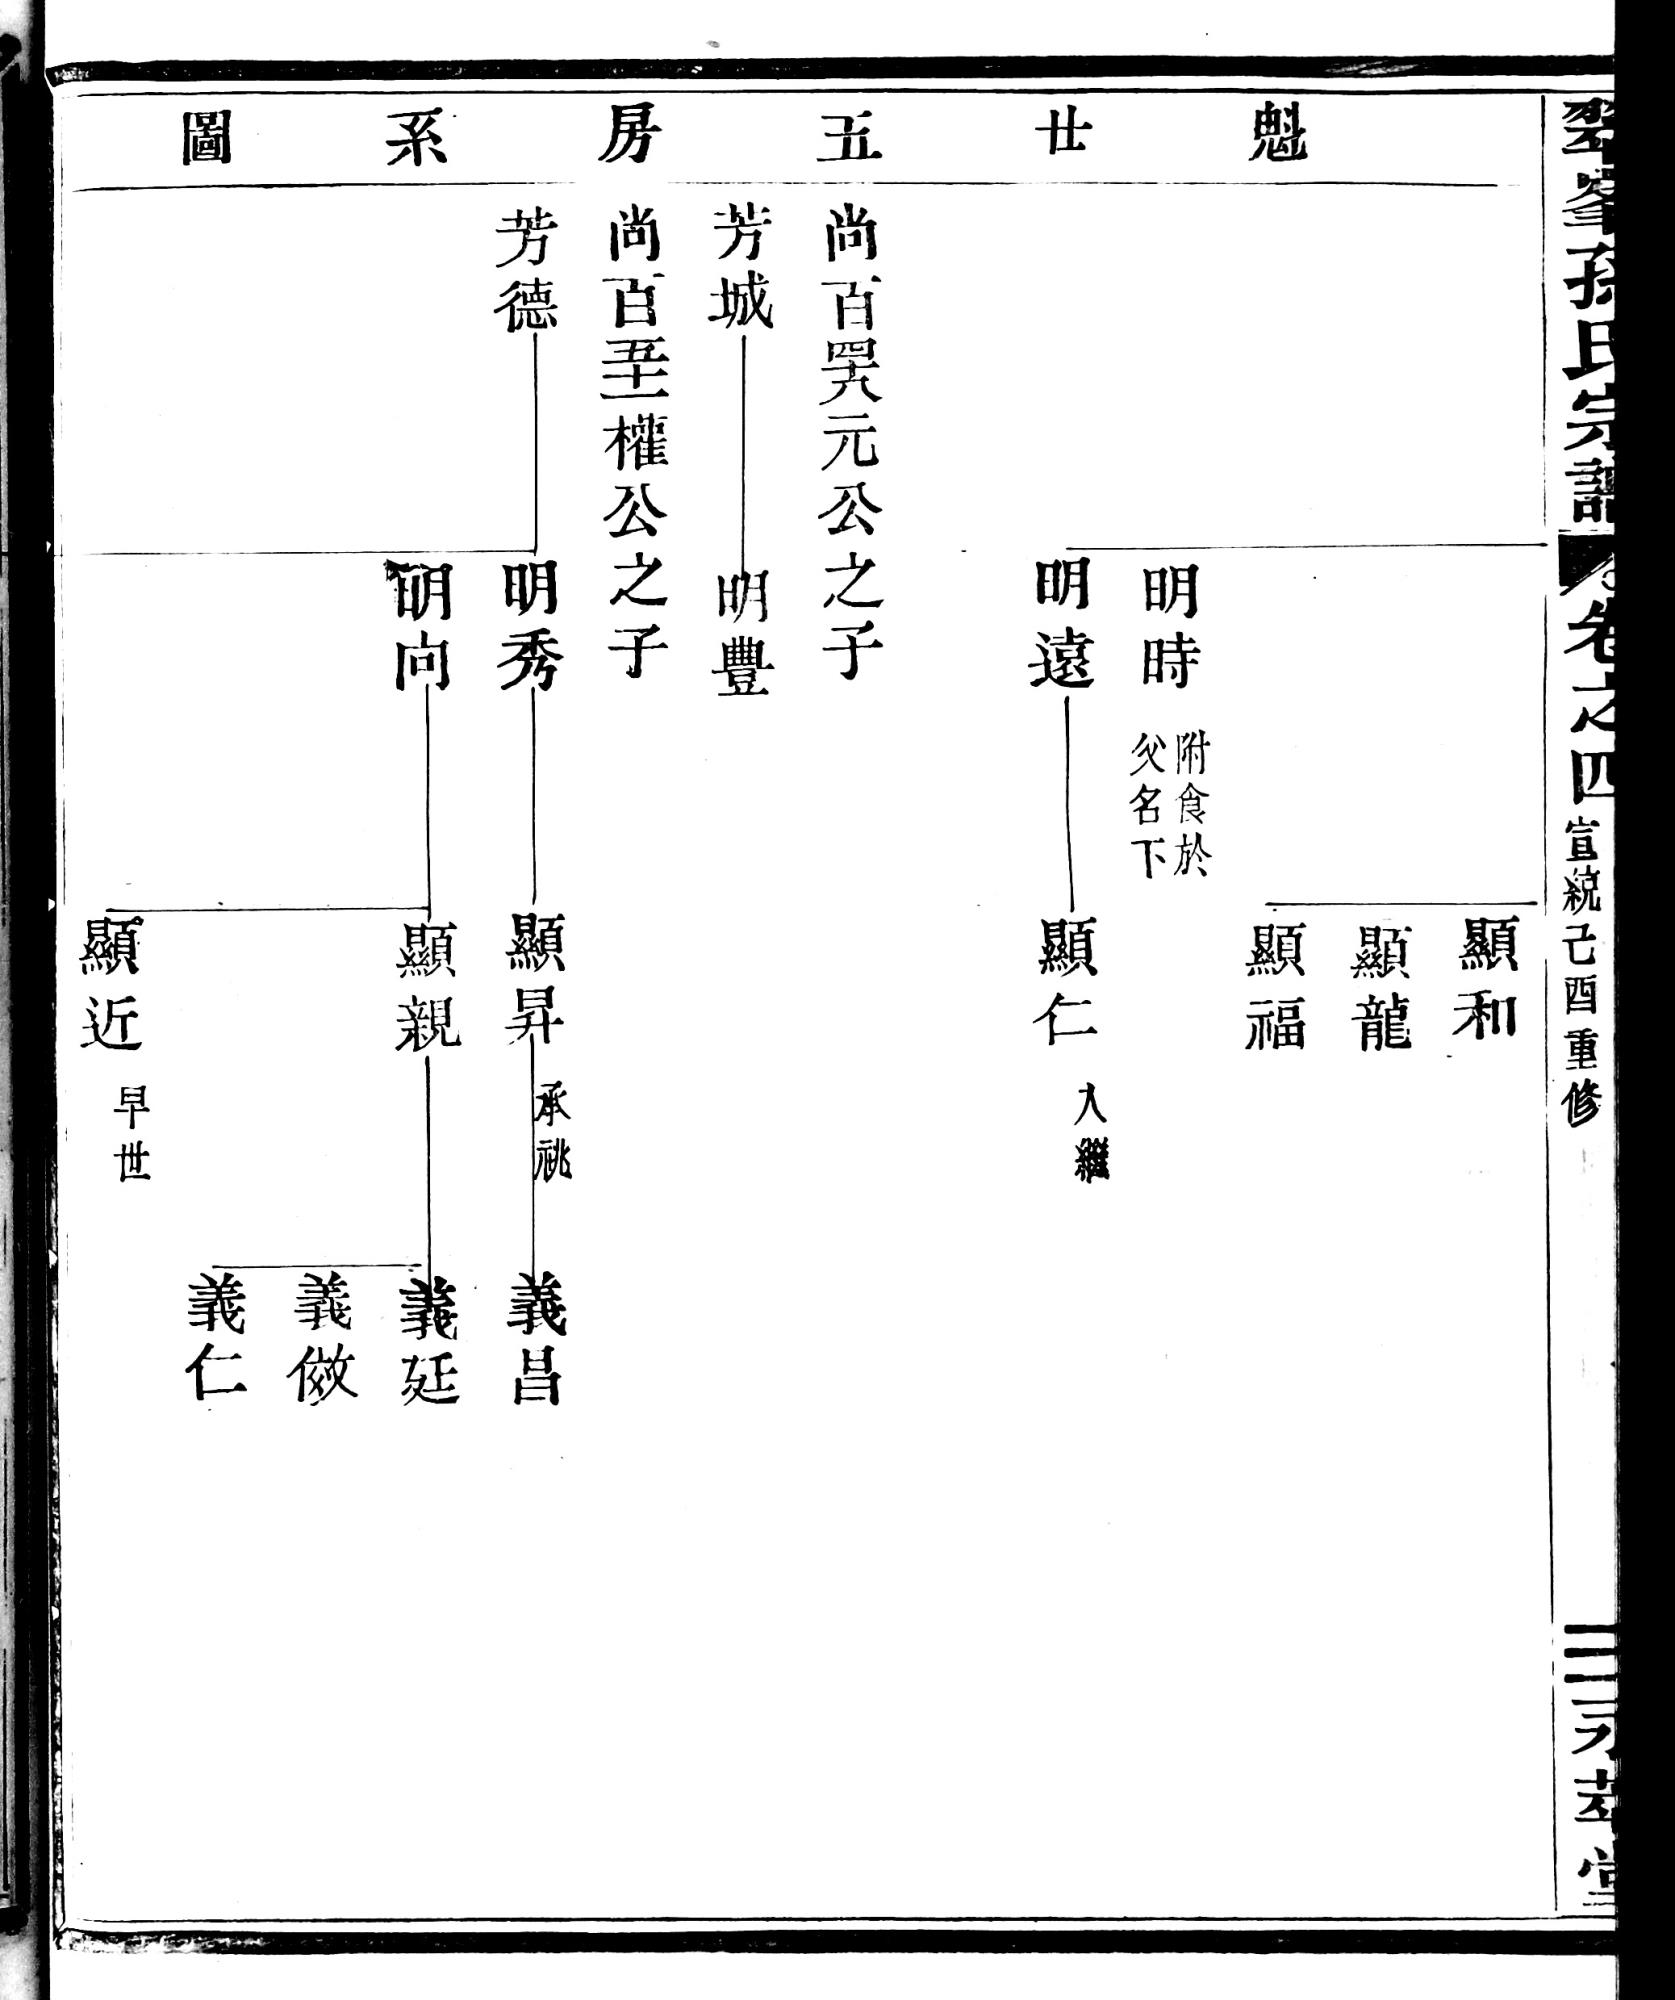 翠峯孫氏宗譜
卷之四
宣統己酉重修
二
永萃堂
魁廿五房系圖
顯和
顯龍
顯福
明時
附食於
父名下
明遠
顯仁
入繼
尚百四十六元公之子
芳城
明豐
尚百五十二權公之子
芳德
明秀
顯昇
承祧
義昌
明向
顯親
義延
義傚
義仁
顯近
早世